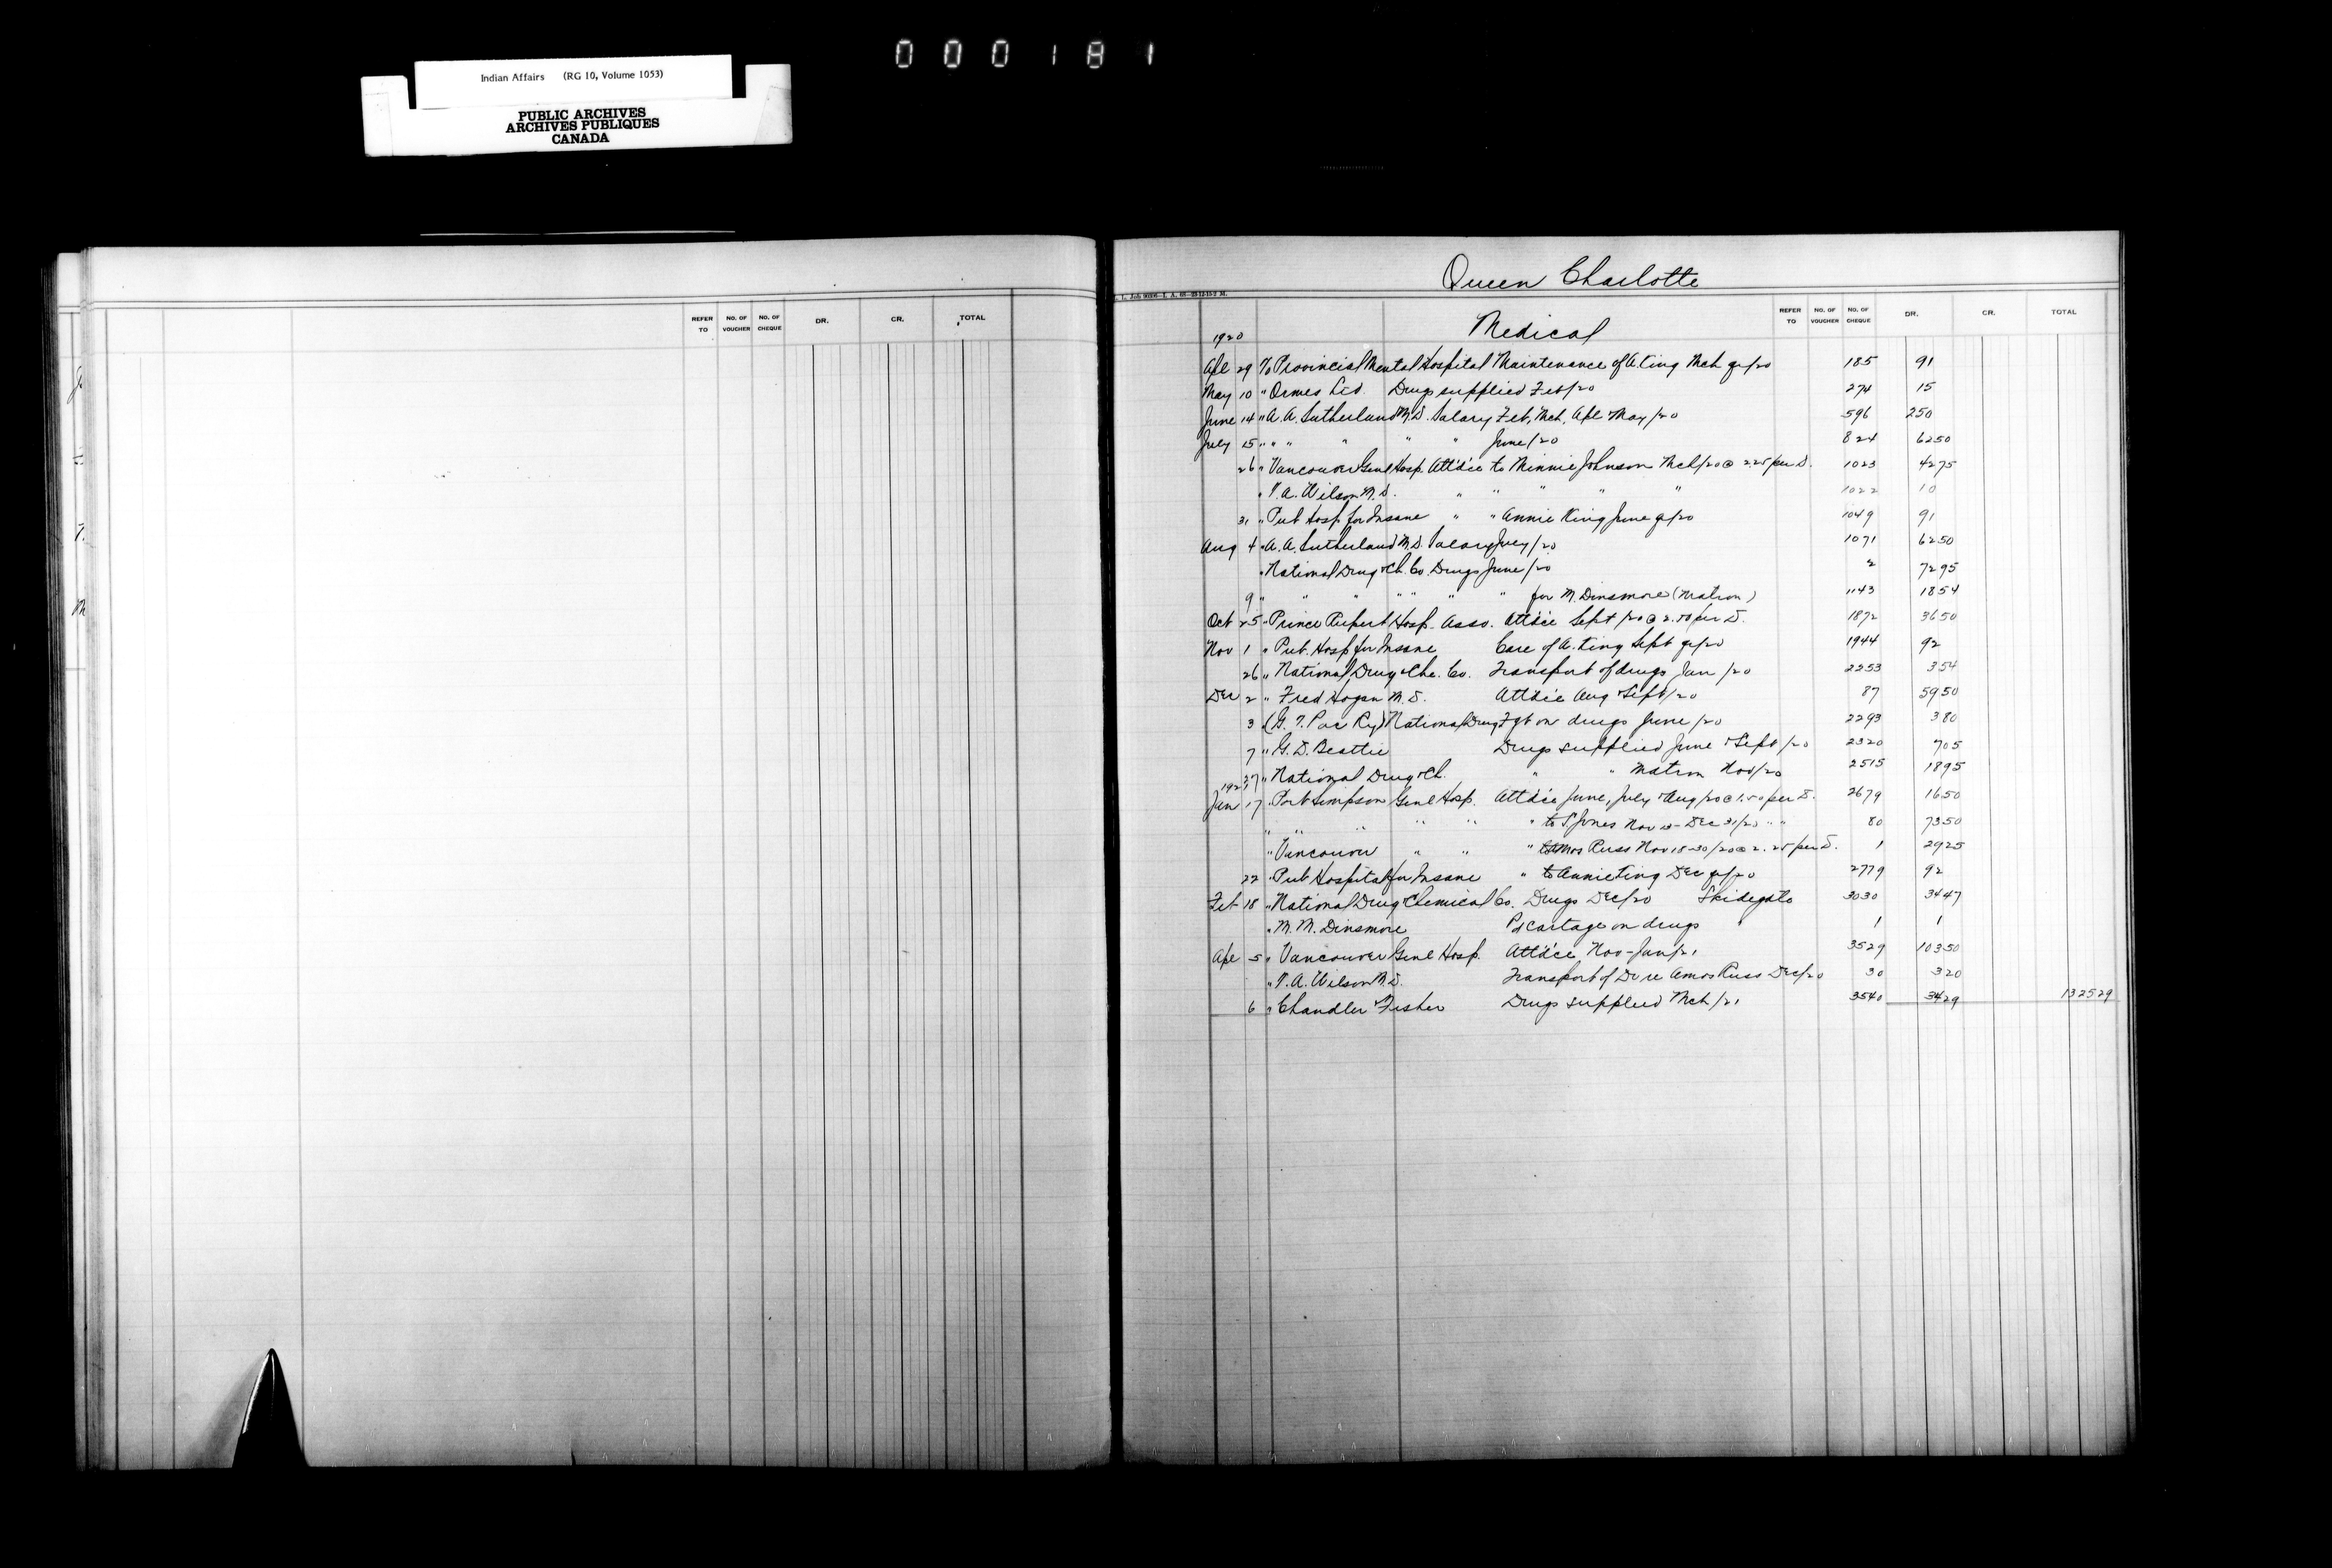 000181
Indian Affairs (RG 10, Volume 1053)
PUBLIC ARCHIVES
ARCHIVES PUBLIQUES
CANADA
REFER TO NO. OF VOUCHER NO. OF CHEQUE DR. CR. TOTAL
Queen Charlotte
REFER TO NO. OF VOUCHER NO. OF CHEQUE DR. CR. TOTAL
1920 Medical
Apl 29 To Provincial Mental Hospital Maintenance of A. Ting Mch qr/20 185 91
May 10 " Ormes Ltd. Drugs supplied Feb/20 274 15
June 14 " A. A. Sutherland M.D. Salary Feb, Mch, Apl May/20 596 250
July 15 " " " " " June/20 824 6250
26 " Vancouver Genl Hosp. Att'd'ce to Minnie Johnson Mch/20 @ 2.25 per D. 1023 4275
" T. A. Wilson M.D. " " " " " 1022 10
31 " Pub Hosp for Insane " " Annie King June qr/20 1049 91
Aug 4 " A. A. Sutherland M.D. Salary July/20 1071 6250
" National Drug & Ch. Co. Drugs June/20 2 7295
9 " " " " " " " for M. Dinsmore (Matron) 1143 1854
Oct 25 " Prince Rupert Hosp. Asso. Att'd'ce Sept/20 @ 2.50 per D. 1872 3650
Nov 1 " Pub. Hosp for Insane Care of A. Ting Sept qr/20 1944 92
26 " National Drug & Che. Co. Transport of drugs Jan/20 2253 354
Dec 2 " Fred Hogan M.D. Att'd'ce Aug & Sept/20 87 5950
3 (G. T. Pac Ry) National Drug Fgt on drugs June/20 2293 380
7 " G. D. Beattie Drugs supplied June & Sept/20 2320 705
27 " National Drug & Ch. " " Matron Nov/20 2515 1895
1921
Jan 17 " Port Simpson Genl Hosp. Att'd'ce June, July & Aug/20 @ 1.50 per D. 2679 1650
" " " " " " to S. Jones Nov 13 - Dec 31/20 " " 80 7350
" Vancouver " " " Amos Russ Nov 18-30/20 @ 2.25 per D. 1 2925
22 " Pub Hospital for Insane " to Annie Ting Dec qr/20 2779 92
Feb 18 " National Drug & Chemical Co. Drugs Dec/20 Skidegate 3030 3447
" M. M. Dinsmore Pd cartage on drugs 1 1
Apl 5 " Vancouver Genl Hosp. Att'd'ce Nov-Jan/21 3529 10350
" T. A. Wilson M.D. Transport of Dr re Amos Russ Dec/20 30 320
6 " Chandler & Fisher Drugs supplied Mch/21 3540 3429 132529